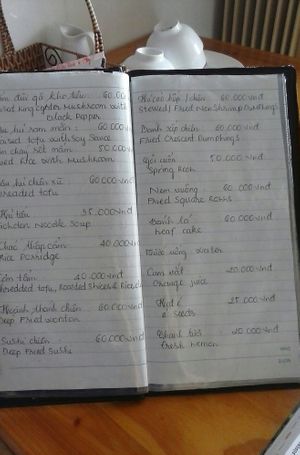 đùi gà kho tiêu: 60.000
King oyster Mushroom with
black Pepper
60.000
tofu with Soy Sauce
chay xốt nấm: 50.000
rice with Mushroom
hũ chiên xù 60.000vnd
Breaded tofu
35.000vnd
Chicken Noodle Soup
Cháo thập cẩm 40.000vnd
Rice Porridge
Cơm tấm 40.000vnd
Shredded tofu, Roasted
Hoành thánh chiên 60.000vnd
Deep Fried wonton
Sushi chiên 60.000vnd
Deep Fried Sushi
60.000vnd
Stewed/Fried Dumplings
Bánh xếp chiên 60.000vnd
Fried Crescent Dumplings
Gỏi cuốn 50.000vnd
Spring Rich
Nem vuông 60.000vnd
Fried Square Rolls
Bánh lá 60.000vnd
leaf cake
Nước uống water
Cam vắt 20.000vnd
Orange juice
Hạt é 25.000vnd
é seeds
Chanh tươi 20.000vnd
fresh lemon